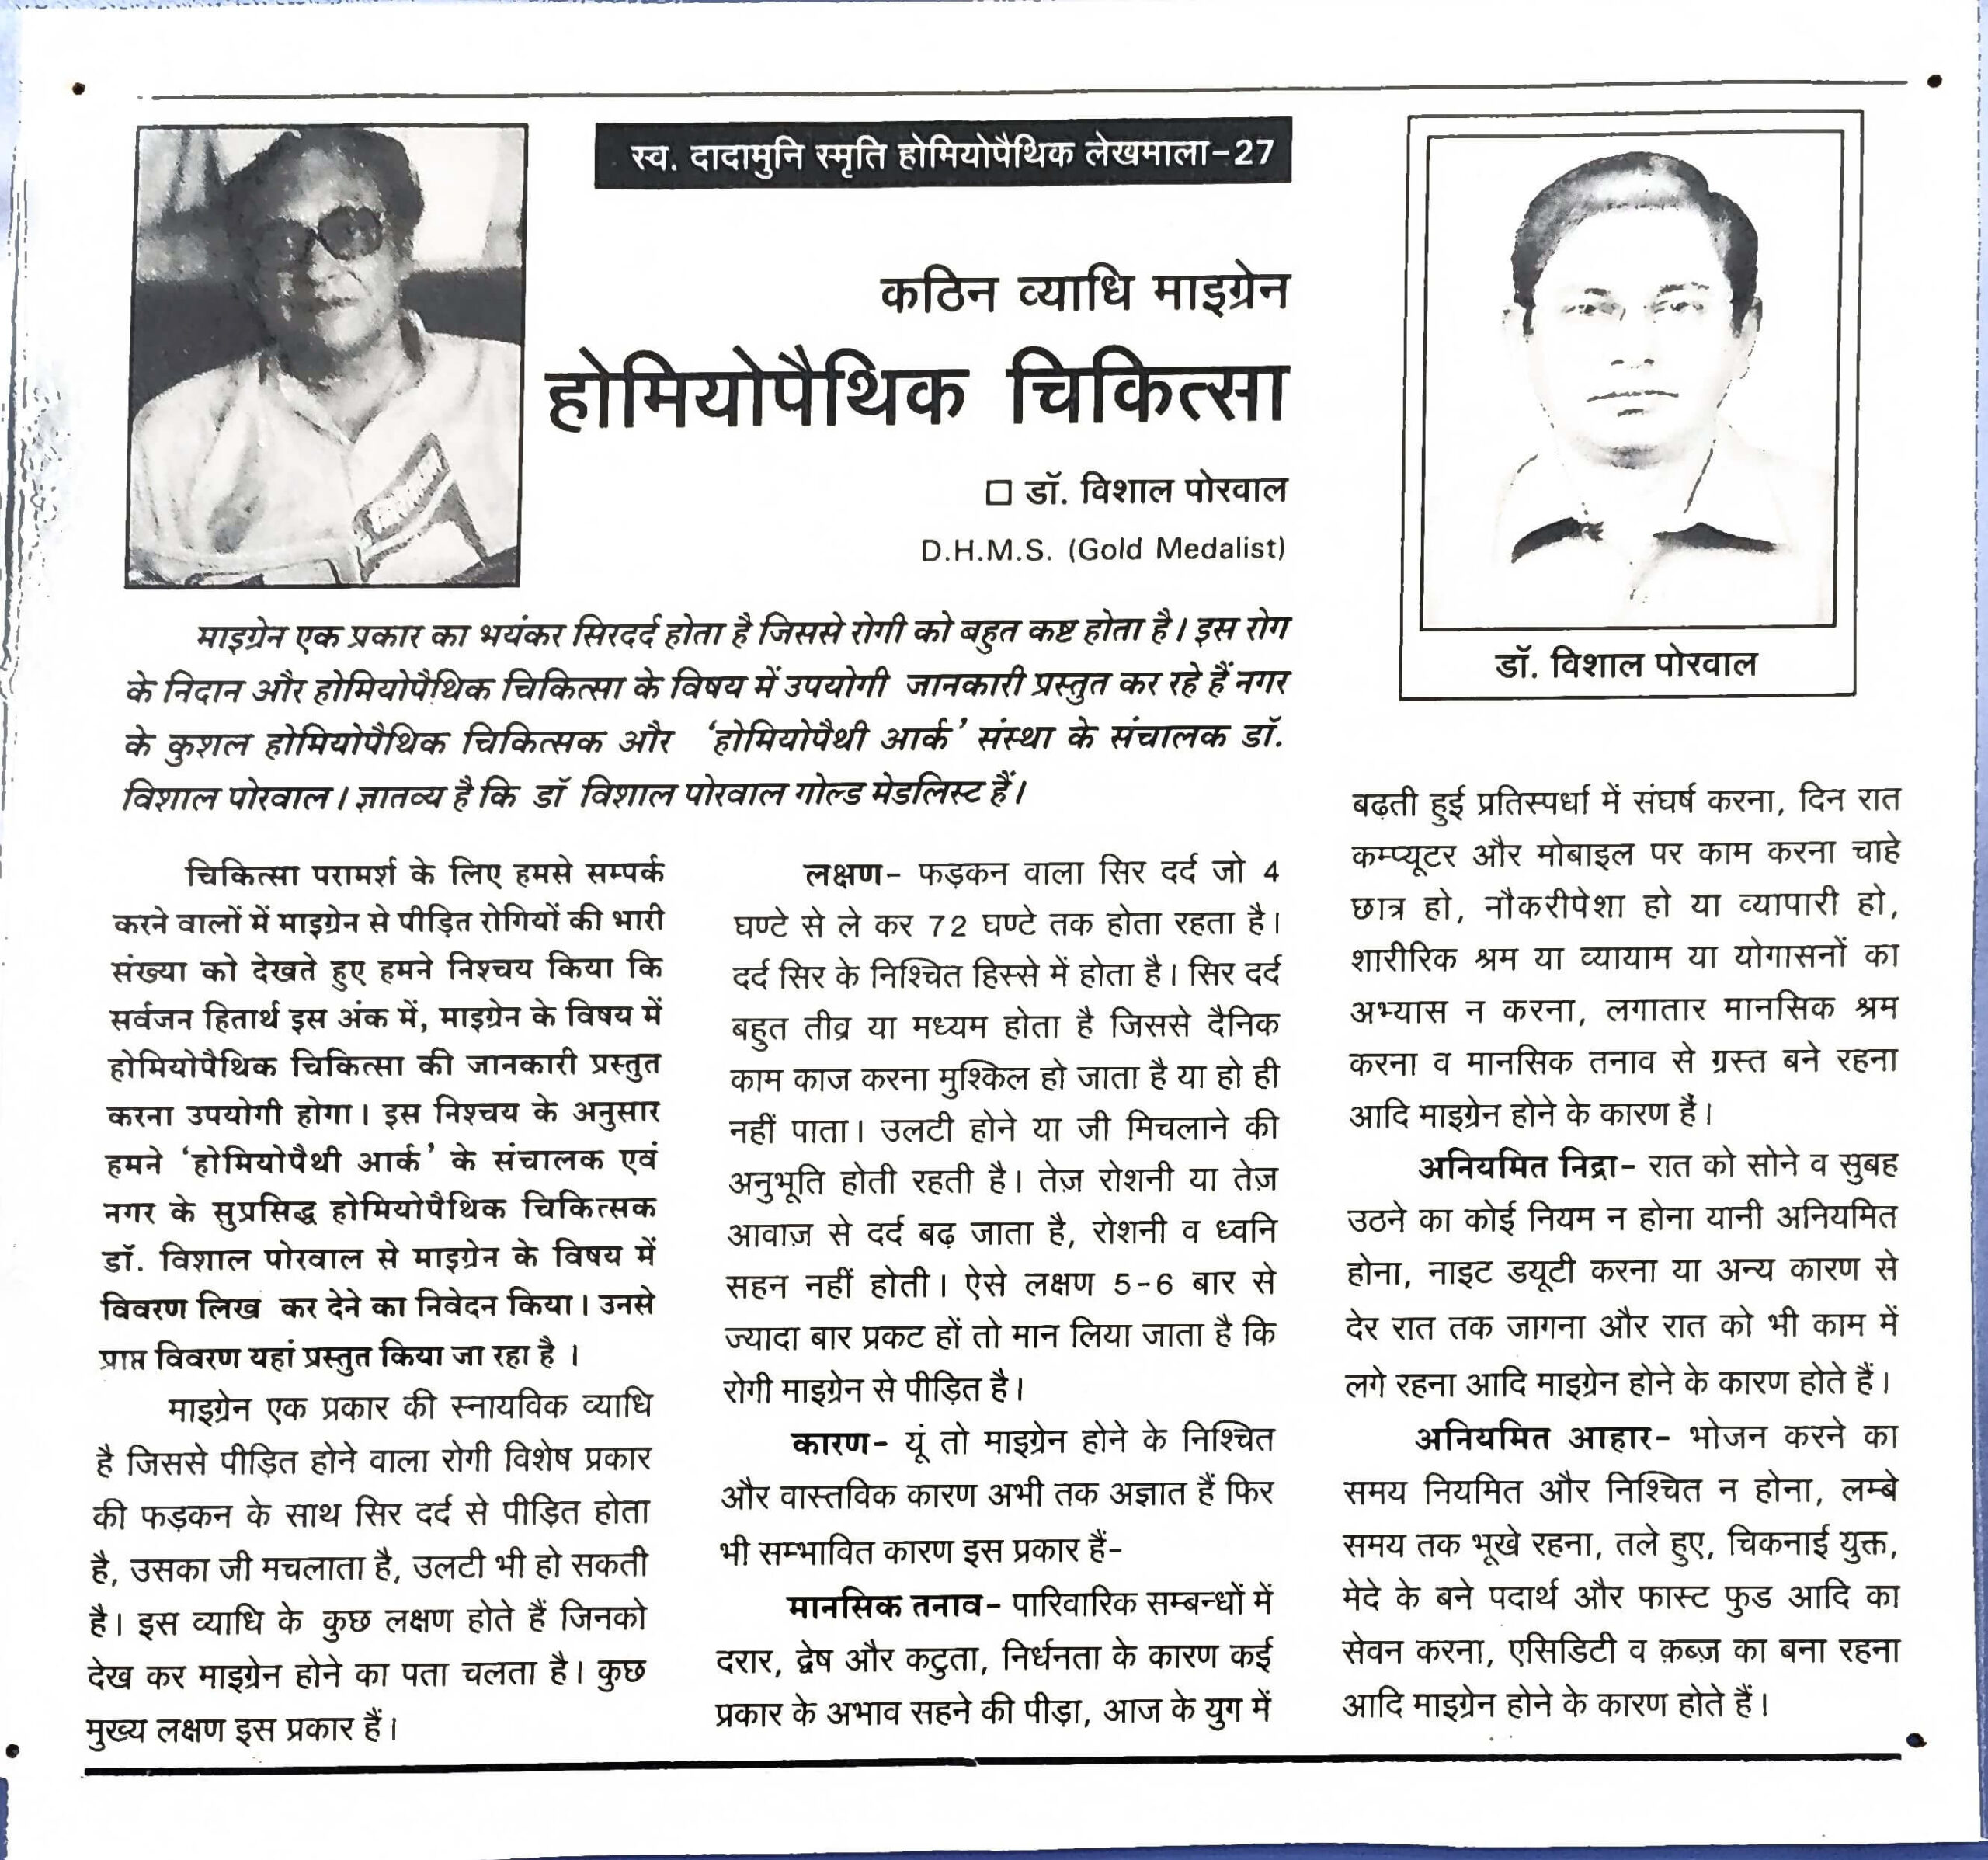 स्व. दादामुनि स्मृति होमियोपैथिक लेखमाला-27
कठिन व्याधि माइग्रेन
होमियोपैथिक चिकित्सा
□ डॉ. विशाल पोरवाल
D.H.M.S. (Gold Medalist)
डॉ. विशाल पोरवाल
माइग्रेन एक प्रकार का भयंकर सिरदर्द होता है जिससे रोगी को बहुत कष्ट होता है। इस रोग
के निदान और होमियोपैथिक चिकित्सा के विषय में उपयोगी जानकारी प्रस्तुत कर रहे हैं नगर
के कुशल होमियोपैथिक चिकित्सक और ‘होमियोपैथी आर्क’ संस्था के संचालक डॉ.
विशाल पोरवाल। ज्ञातव्य है कि डॉ विशाल पोरवाल गोल्ड मेडलिस्ट हैं।
चिकित्सा परामर्श के लिए हमसे सम्पर्क
करने वालों में माइग्रेन से पीड़ित रोगियों की भारी
संख्या को देखते हुए हमने निश्चय किया कि
सर्वजन हितार्थ इस अंक में, माइग्रेन के विषय में
होमियोपैथिक चिकित्सा की जानकारी प्रस्तुत
करना उपयोगी होगा। इस निश्चय के अनुसार
हमने ‘होमियोपैथी आर्क’ के संचालक एवं
नगर के सुप्रसिद्ध होमियोपैथिक चिकित्सक
डॉ. विशाल पोरवाल से माइग्रेन के विषय में
विवरण लिख कर देने का निवेदन किया। उनसे
प्राप्त विवरण यहां प्रस्तुत किया जा रहा है ।
माइग्रेन एक प्रकार की स्नायविक व्याधि
है जिससे पीड़ित होने वाला रोगी विशेष प्रकार
की फड़कन के साथ सिर दर्द से पीड़ित होता
है, उसका जी मचलाता है, उलटी भी हो सकती
है। इस व्याधि के कुछ लक्षण होते हैं जिनको
देख कर माइग्रेन होने का पता चलता है। कुछ
मुख्य लक्षण इस प्रकार हैं।
लक्षण- फड़कन वाला सिर दर्द जो 4
घण्टे से ले कर 72 घण्टे तक होता रहता है।
दर्द सिर के निश्चित हिस्से में होता है। सिर दर्द
बहुत तीव्र या मध्यम होता है जिससे दैनिक
काम काज करना मुश्किल हो जाता है या हो ही
नहीं पाता। उलटी होने या जी मिचलाने की
अनुभूति होती रहती है। तेज़ रोशनी या तेज़
आवाज़ से दर्द बढ़ जाता है, रोशनी व ध्वनि
सहन नहीं होती। ऐसे लक्षण 5-6 बार से
ज्यादा बार प्रकट हों तो मान लिया जाता है कि
रोगी माइग्रेन से पीड़ित है।
कारण- यूं तो माइग्रेन होने के निश्चित
और वास्तविक कारण अभी तक अज्ञात हैं फिर
भी सम्भावित कारण इस प्रकार हैं-
मानसिक तनाव- पारिवारिक सम्बन्धों में
दरार, द्वेष और कटुता, निर्धनता के कारण कई
प्रकार के अभाव सहने की पीड़ा, आज के युग में
बढ़ती हुई प्रतिस्पर्धा में संघर्ष करना, दिन रात
कम्प्यूटर और मोबाइल पर काम करना चाहे
छात्र हो, नौकरीपेशा हो या व्यापारी हो,
शारीरिक श्रम या व्यायाम या योगासनों का
अभ्यास न करना, लगातार मानसिक श्रम
करना व मानसिक तनाव से ग्रस्त बने रहना
आदि माइग्रेन होने के कारण हैं।
अनियमित निद्रा- रात को सोने व सुबह
उठने का कोई नियम न होना यानी अनियमित
होना, नाइट डयूटी करना या अन्य कारण से
देर रात तक जागना और रात को भी काम में
लगे रहना आदि माइग्रेन होने के कारण होते हैं।
अनियमित आहार- भोजन करने का
समय नियमित और निश्चित न होना, लम्बे
समय तक भूखे रहना, तले हुए, चिकनाई युक्त,
मेदे के बने पदार्थ और फास्ट फुड आदि का
सेवन करना, एसिडिटी व क़ब्ज़ का बना रहना
आदि माइग्रेन होने के कारण होते हैं।